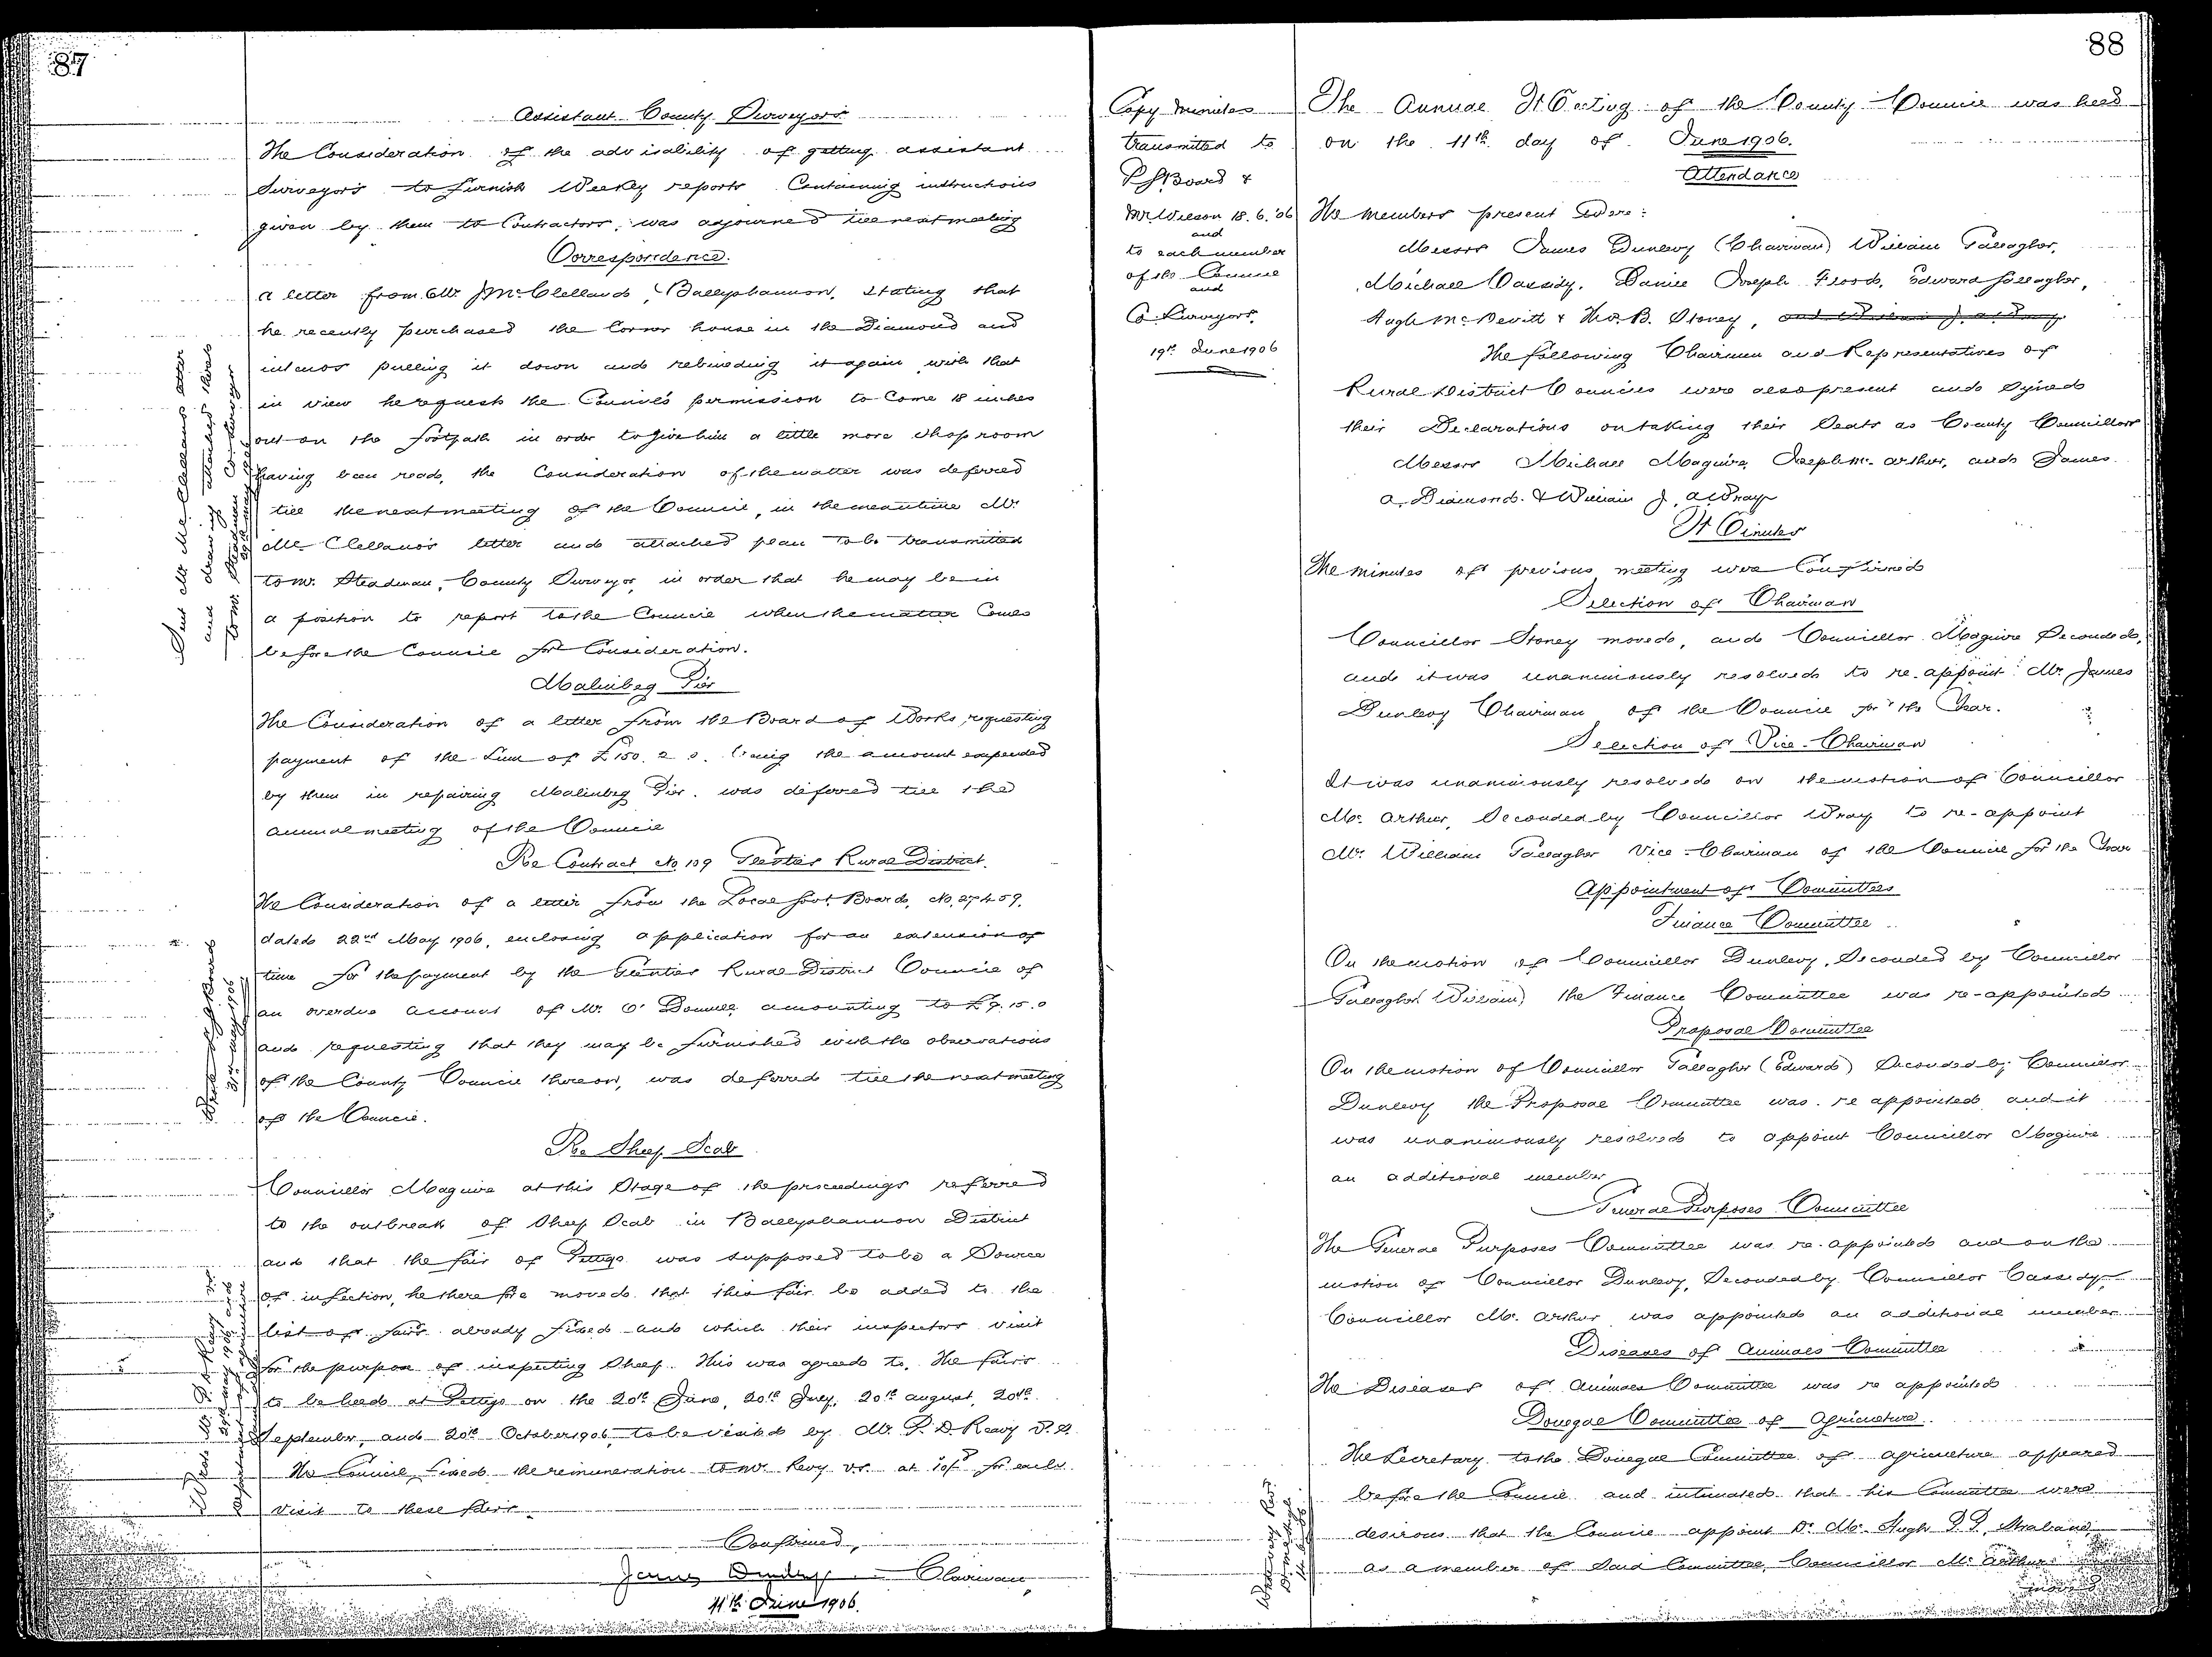 87
Assistant County Surveyors
The Consideration of the advisability of getting assistant
Surveyors to furnish Weekly reports Containing instructions
given by them to Contractors, was adjourned till next meeting
Correspondence.
a letter from Mr. J McClelland, Ballyshannon, stating that
he recently purchased the Corner house in the Diamond and
intends pulling it down and rebuilding it again with that
in view he requests the Council's permission to Come 18 inches
out on the footpath in order to give him a little more shop room
having been read, the Consideration of the matter was deferred
till the next meeting of the Council, in the meantime Mr.
McClelland's letter and attached plan to be transmitted
to Mr. Steadman, County Surveyor, in order that he may be in
a position to report to the Council when the matter Comes
before the Council for Consideration.
Sent Mr McClelland's letter
and drawing attached thereto
to Mr. Steadman Co. Surveyor
Malinbeg Pier
The Consideration of a letter from the Board of Works, requesting
payment of the Sum of £150. 2 0. being the amount expended
by them in repairing Malinbeg Pier, was deferred till the
annual meeting of the Council
Re Contract No. 109 Glenties Rural District.
The Consideration of a letter from the Local Govt. Board, No. 27459,
dated 22nd May 1906, enclosing application for an extension of
time for the payment by the Glenties Rural District Council of
an overdue account of Mr. O'Donnell amounting to £9. 15. 0
and requesting that they may be furnished with the observations
of the County Council thereon, was deferred till the next meeting
of the Council.
Wrote L G Board
31st May 1906
Re Sheep Scab
Councillor Maguire at this Stage of the proceedings referred
to the outbreak of Sheep Scab in Ballyshannon District
and that the fair of Pettigo was supposed to be a Source
of infection, he therefore moved that this fair be added to the
list of fairs already fixed and which their inspectors visit
for the purpose of inspecting Sheep. This was agreed to. The fairs
to be held at Pettigo on the 20th June, 20th July, 20th August, 20th
September, and 20th October 1906, to be visited by Mr. P. D. Reavy V.S.
The Council fixed the remuneration to Mr. Revy V.S. at 10/- for each
visit to these fairs
Confirmed,
James Dunlevy Chairman
11th June 1906.
88
Copy Minutes
transmitted to
L G Board &
Mr Wilson 18.6.'06
and
to each member
of the Council
and
Co. Surveyors,
19th June 1906
The Annual Meeting of the County Council was held
on the 11th day of June 1906.
Attendance
The members present Were:
Messrs James Dunlevy (Chairman) William Gallagher,
Michael Cassidy, Daniel Joseph Flood, Edward Gallagher,
Hugh McDevitt & Thos. B. Stoney,
The following Chairmen and Representatives of
Rural District Councils were also present and signed
their Declarations on taking their Seats as County Councillors
Messrs Michael Maguire, Joseph McArthur, and James
A. Diamond. & William J. A Wray
Minutes
The minutes of previous meeting were Confirmed
Selection of Chairman
Councillor Stoney moved, and Councillor Maguire Seconded,
and it was unanimously resolved to re-appoint Mr. James
Dunlevy Chairman of the Council for the Year.
Selection of Vice-Chairman
It was unanimously resolved on the motion of Councillor
Mc. Arthur, Seconded by Councillor Wray to re-appoint
Mr. William Gallagher Vice-Chairman of the Council for the Year
Appointment of Committees
Finance Committee
On the motion of Councillor Dunlevy, Seconded by Councillor
Gallagher (William) the Finance Committee was re-appointed
Proposal Committee
On the motion of Councillor Gallagher (Edward) Seconded by Councillor
Dunlevy the Proposal Committee was re appointed and it
was unanimously resolved to appoint Councillor Maguire
an additional member
General Purposes Committee
The General Purposes Committee was re-appointed and on the
motion of Councillor Dunlevy, Seconded by Councillor Cassidy,
Councillor Mc. Arthur was appointed an additional member
Diseases of Animals Committee
The Diseases of Animals Committee was re appointed
Donegal Committee of Agriculture.
The Secretary to the Donegal Committee of Agriculture appeared
before the Council and intimated that his Committee were
desirous that the Council appoint Dr. Mc. Hugh P.P. Strabane
as a member of Said Committee, Councillor Mc Arthur
moved